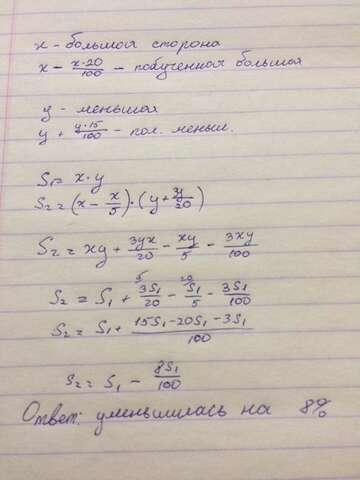 x - большая сторона
x - x·20/100 - полученная большая
y - меньшая
y + y·15/100 - пол. меньш.
S₁= x·y
S₂=(x - x/5)·(y+3y/20)
S₂ = xy + 3yx/20 - xy/5 - 3xy/100
S₂ = S₁ + 3S₁/20 ⁵ - S₁/5 ²⁰ - 3S₁/100
S₂ = S₁ + 15S₁-20S₁-3S₁/100
S₂ = S₁ - 8S₁/100
Ответ: уменьшилась на 8%